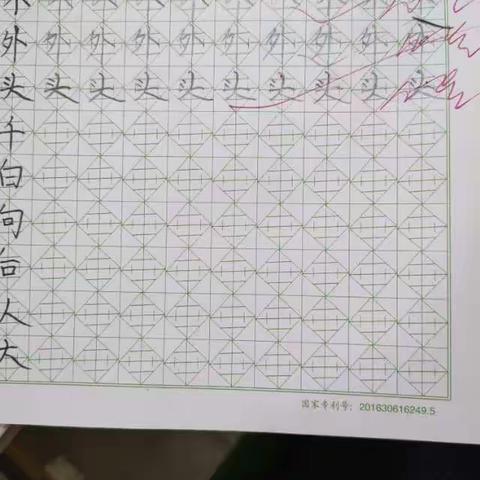 外外外外外外外外外外
头头头头头头头头头头
千
白
句
后
人
大
国家专利号：201630616249.5